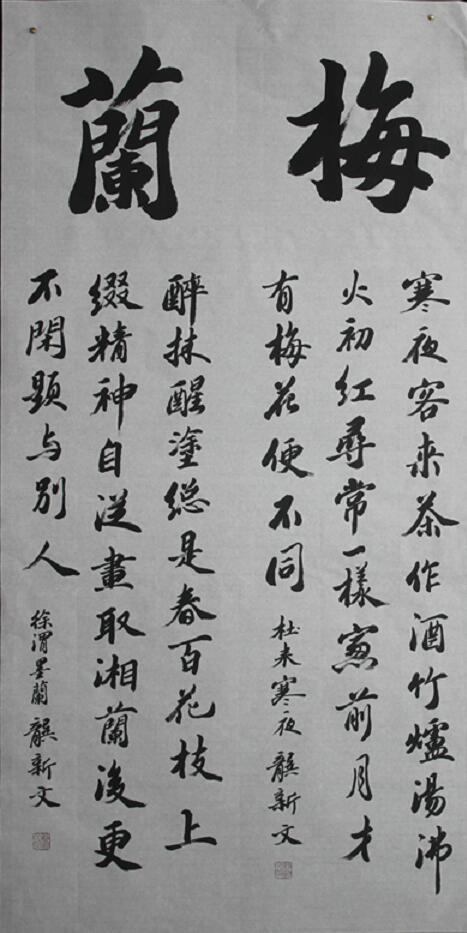 梅
寒夜客来茶作酒竹爐湯沸
火初红尋常一樣窓前月才
有梅花便不同 杜耒寒夜 龔新文
蘭
醉抹醒塗総是春百花枝上
缀精神自従畫取湘蘭後更
不閑題与别人 徐渭墨蘭 龔新文